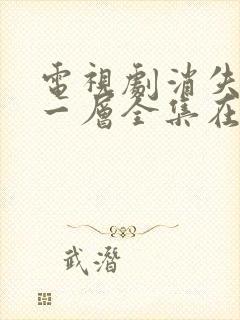 電視劇消失
一層全集在
武潛